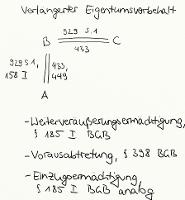 Verlängerter Eigentumsvorbehalt
929 S.1
B C
433
929 S1,
158 I
433,
449
A
- Weiterveräußerungsermächtigung,
§ 185 I BGB
- Vorausabtretung, § 398 BGB
- Einzugsermächtigung,
§ 185 I BGB analog